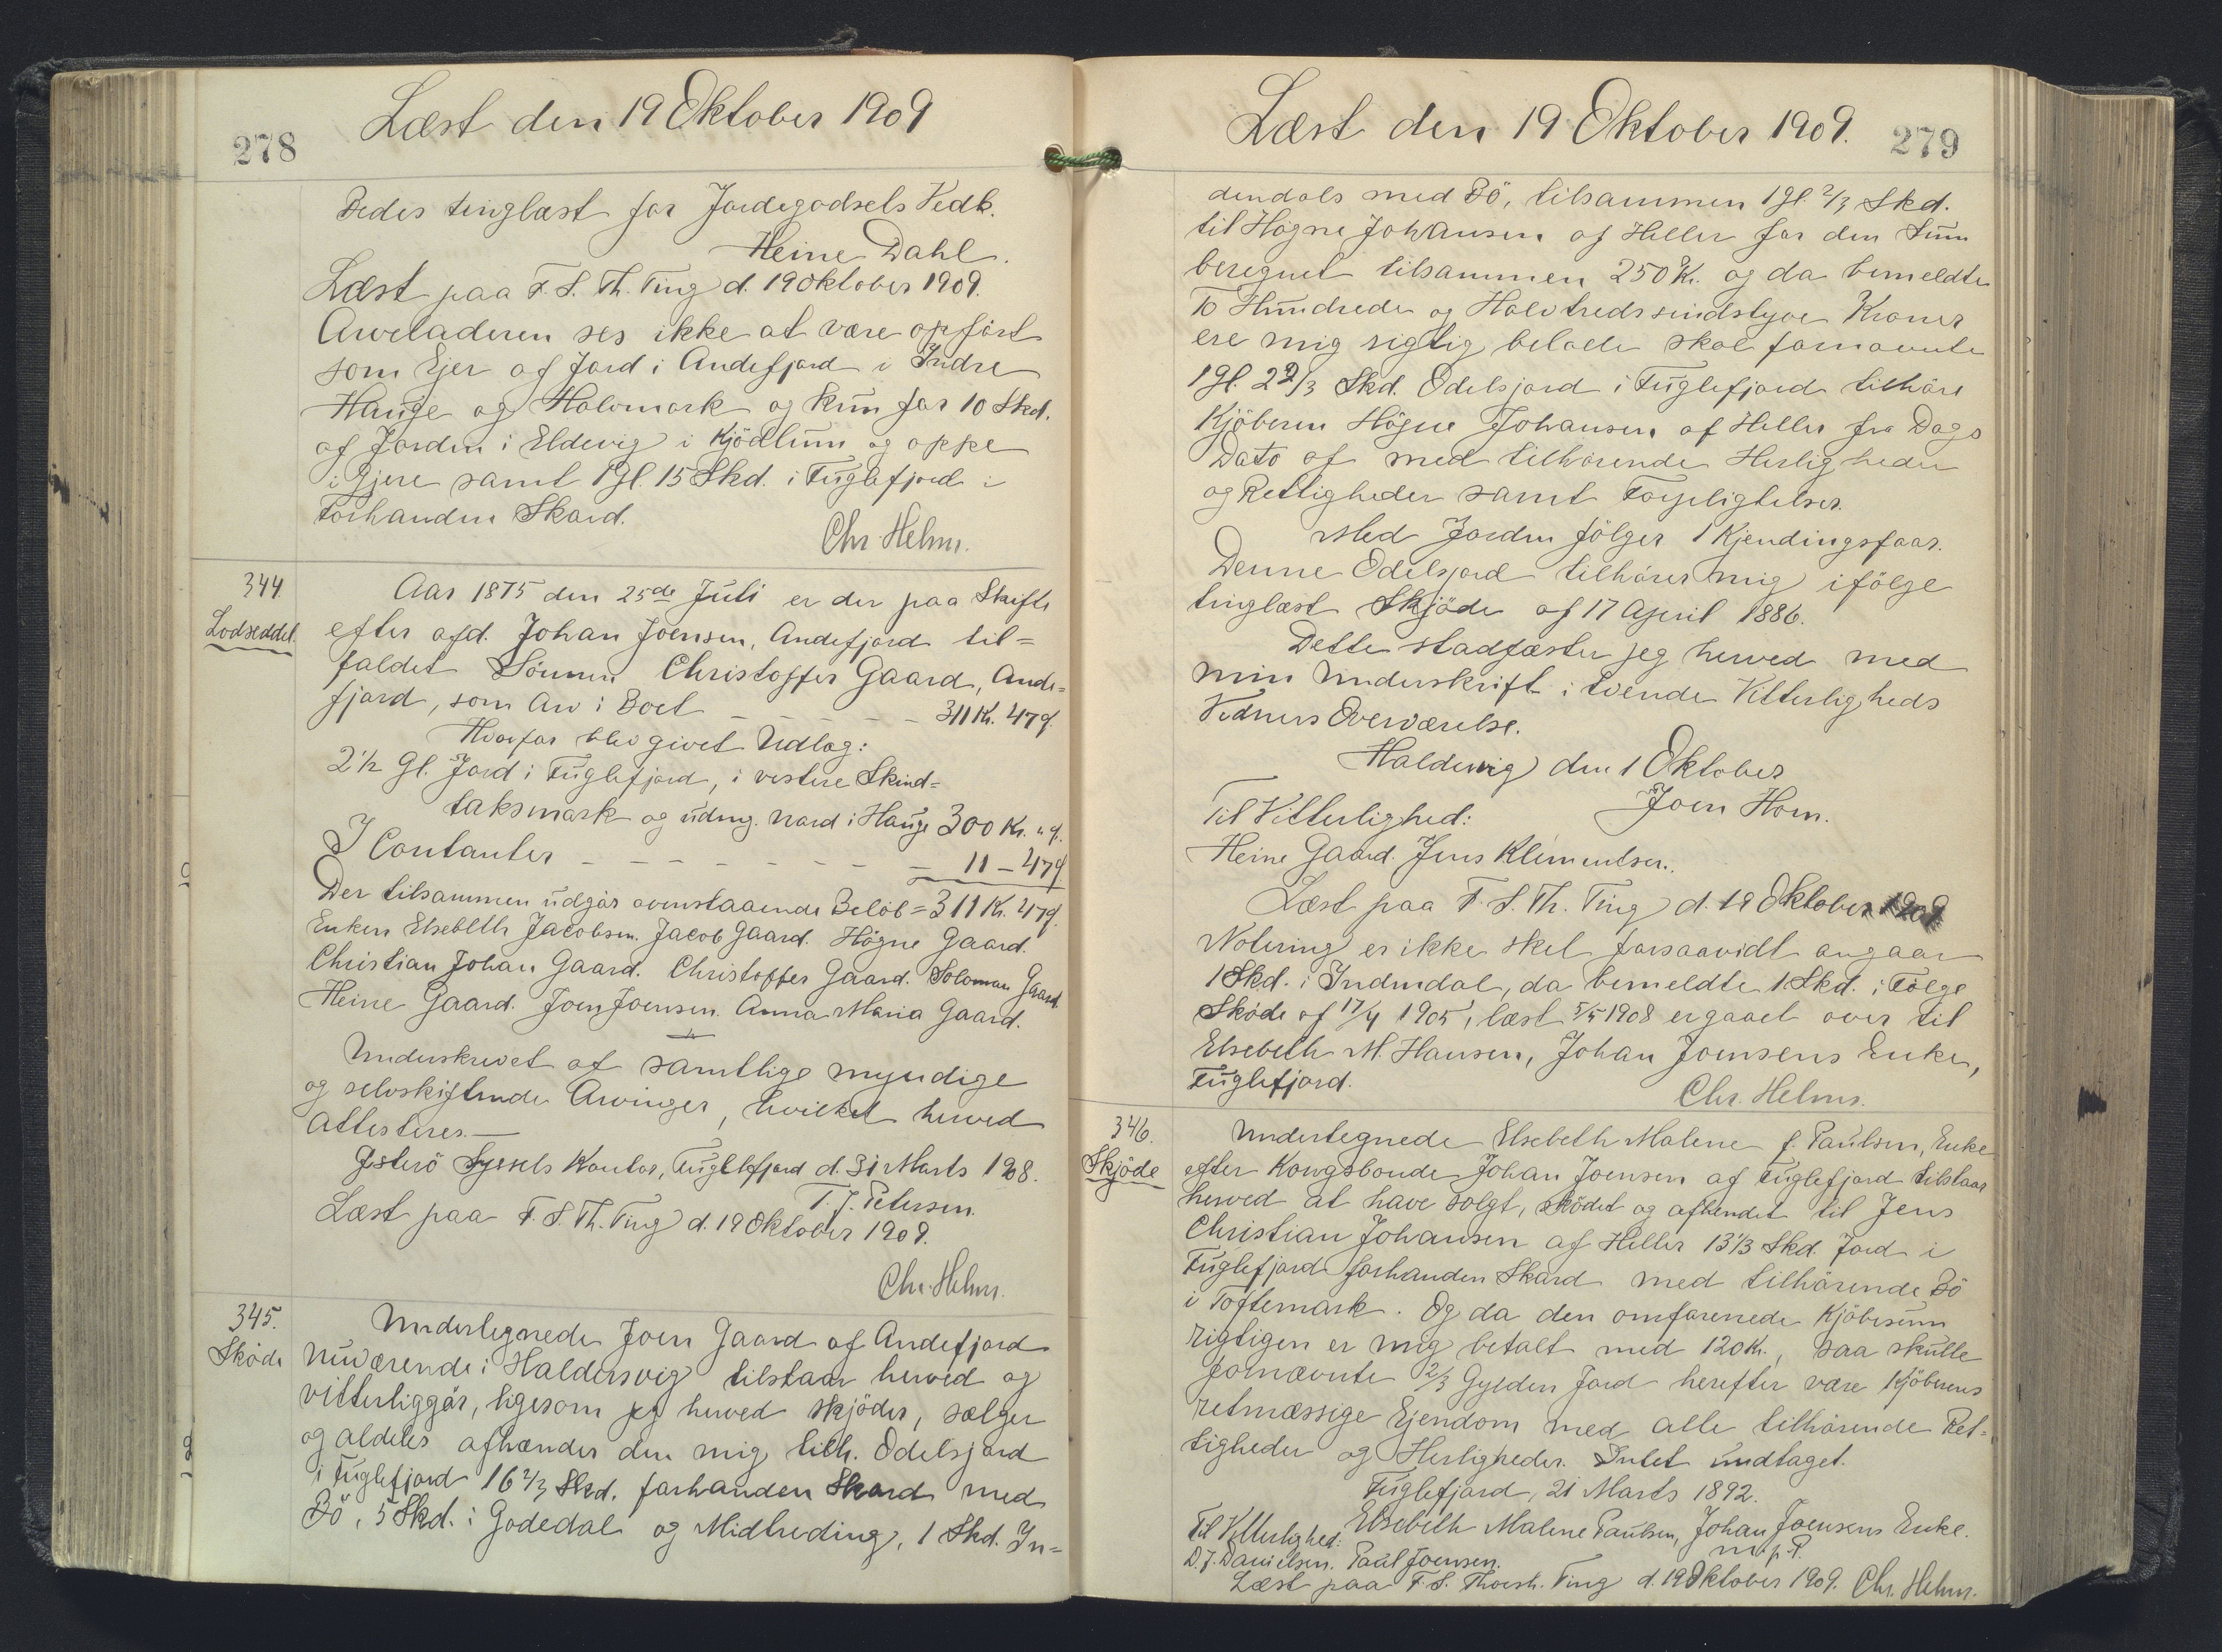 278
Læst den 19 Oktober 1909
Bedes tinglæst for Jordegodsets Vedk.
Heine Dahl.
Læst paa F. S. Th. Ting d. 19 Oktober 1909.
Arveladeren ses ikke at være opført
som Ejer af Jord i Andefjord i Indre
Hauge og Halvmark og kun for 10 Skd.
af Jorden i Eldevig i Kjödlum og oppe
i Gjere samt 1 Gl. 15 Skd. i Fuglefjord i
Forhanden Skard.
Chr. Helms.
344.
Lodseddel.
Aar 1875 den 25de Juli er der paa Skifte
efter afd. Johan Joensen, Andefjord til=
faldet Sönnen Christoffer Gaard, Ande=
fjord, som Arv i Boet – – – – – 311 Kr. 47 Ø.
Hvorfor blev givet Udlag:
2 1/2 Gl. Jord i Fuglefjord, i vestere Skind=
taksmark og udmg. Nord i Hauge 300 Kr. " Ø.
I Contanter – – – – – – – – 11 – 47 Ø.
Der tilsammen udgør ovenstaaende Belöb = 311 Kr. 47 Ø.
Enken Elsebeth Jacobsen. Jacob Gaard. Högne Gaard.
Christian Johan Gaard. Christoffer Gaard. Soloman Gaard.
Heine Gaard. Joen Joensen. Anna Maria Gaard.
Underskrevet af samtlige myndige
og selvskiftende Arvinger, hvilket herved
Attesteres.—
Østerö Syssels Kontor, Fuglefjord d. 31 Marts 1908.
T. J. Petersen.
Læst paa F. S. Th. Ting d. 19 Oktober 1909.
Chr. Helms.
345.
Sköde
Undertegnede Joen Gaard af Andefjord
nuværende i Haldersvig tilstaar herved og
vitterliggör, ligesom jeg herved skjöder, sælger
og aldeles afhænder den mig tilh. Odelsjord
i Fuglefjord 16 2/3 Skd. forhanden Skard med
Bö, 5 Skd. i Godedal og Midtreding, 1 Skd. In=
279
Læst den 19 Oktober 1909.
dendals med Bö, tilsammen 1 gl. 2/3 Skd.
til Högne Johansen af Heller for den Sum
beregnet tilsammen 250 Kr. og da bemeldte
To Hundrede og Halvtredssindstyve Kroner
ere mig rigtig betalte skal fornævnte
1 gl. 2 2/3 Skd. Odelsjord i Fuglefjord tilhöre
Kjöberen Högne Johansen af Heller fra Dags
Dato af med tilhörende Herligheder
og Rettigheder samt Forpligtelser.
Med Jorden fölger 1 Kjendingsfaar.
Denne Odelsjord tilhörer mig ifölge
tinglæst Skjöde af 17 April 1886.
Dette stadfæster jeg herved med
min Underskrift i tvende Vitterligheds
Vidners Overværelse.
Haldersvig den 1 Oktober
Til Vitterlighed: Joen Horn.
Heine Gaard. Jens Klementsen.
Læst paa F. S. Th. Ting d. 19 Oktober 1909
Notering er ikke sket forsaavidt angaar
1 Skd. i Indendal, da bemeldte 1 Skd. i Følge
Sköde af 17/4 1905, læst 5/5 1908 er gaaet over til
Elsebeth M. Hansen, Johan Joensens Enke,
Fuglefjord.
Chr. Helms.
346.
Skjöde
Undertegnede Elsebeth Malene f. Paulsen, Enke
efter Kongsbonde Johan Joensen af Fuglefjord tilstaar
herved at have solgt, sködet og afhendet til Jens
Christian Johansen af Heller 13 1/3 Skd. Jord i
Fuglefjord forhanden Skard med tilhörende Bö
i Toftemark. Og da den omforenede Kjöbesum
rigtigen er mig betalt med 120 Kr., saa skulle
fornævnte 2/3 Gylden Jord herefter være Kjöberens
retmæssige Ejendom med alle tilhörende Ret=
tigheder og Herligheder. Intet undtaget.
Fuglefjord, 21 Marts 1892.
Elsebeth Malene Paulsen, Johan Joensens Enke.
m. p. P.
Til Vitterlighed:
D. J. Danielsen. Paul Joensen.
Læst paa F. S. Thorsh. Ting d. 19 Oktober 1909. Chr. Helms.